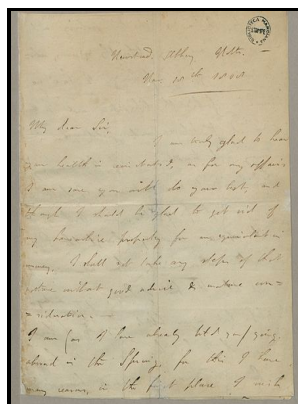 Newstead Abbey Notts. -
Nov. 18th 1808
My dear Sir,
I am truly glad to hear
your health is reinstated, as for my affairs
I am sure you will do your best, and
though I should be glad to get rid of
my Lancashire property for an equivalent in
money, I shall not take any steps of that
nature without good advice & mature con-
= sideration. -
I am (as I have already told you) going
abroad in the Spring, for this I have
many reasons, in the first place I wish